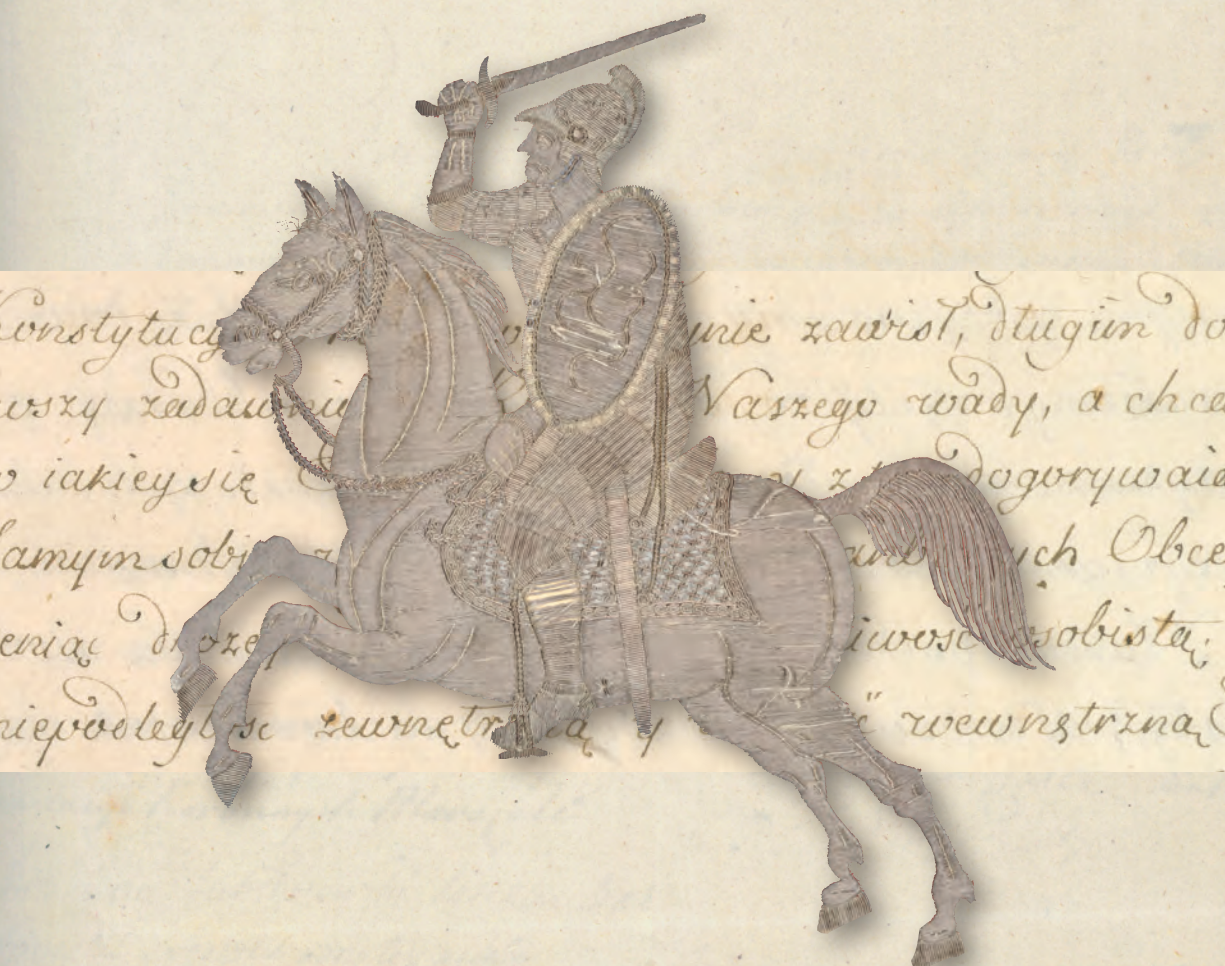 Konstytucy ynie zawisł, długim do
wszy zadawnio Naszego wady, a chcą
w iakiey się dogorywaią
samym sobie ych Obce
ceniąc drożey iwość osobistą,
niepodległość zewnętrzną y ść wewnętrzną